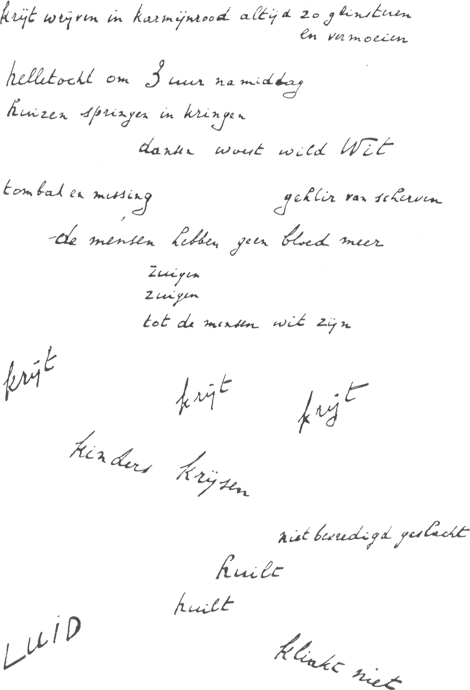 krijt wrijven in karmijnrood altijd zo glinsteren
en vermoeien
helletocht om 3 uur namiddag
huizen springen in kringen
dansen woest wild Wit
tombak en messing geklir van scherven
de mensen hebben geen bloed meer
zuigen
zuigen
tot de mensen wit zijn
krijt
krijt krijt
kinders krijsen
niet bevredigd geslacht
huilt
huilt
LUID
klinkt niet